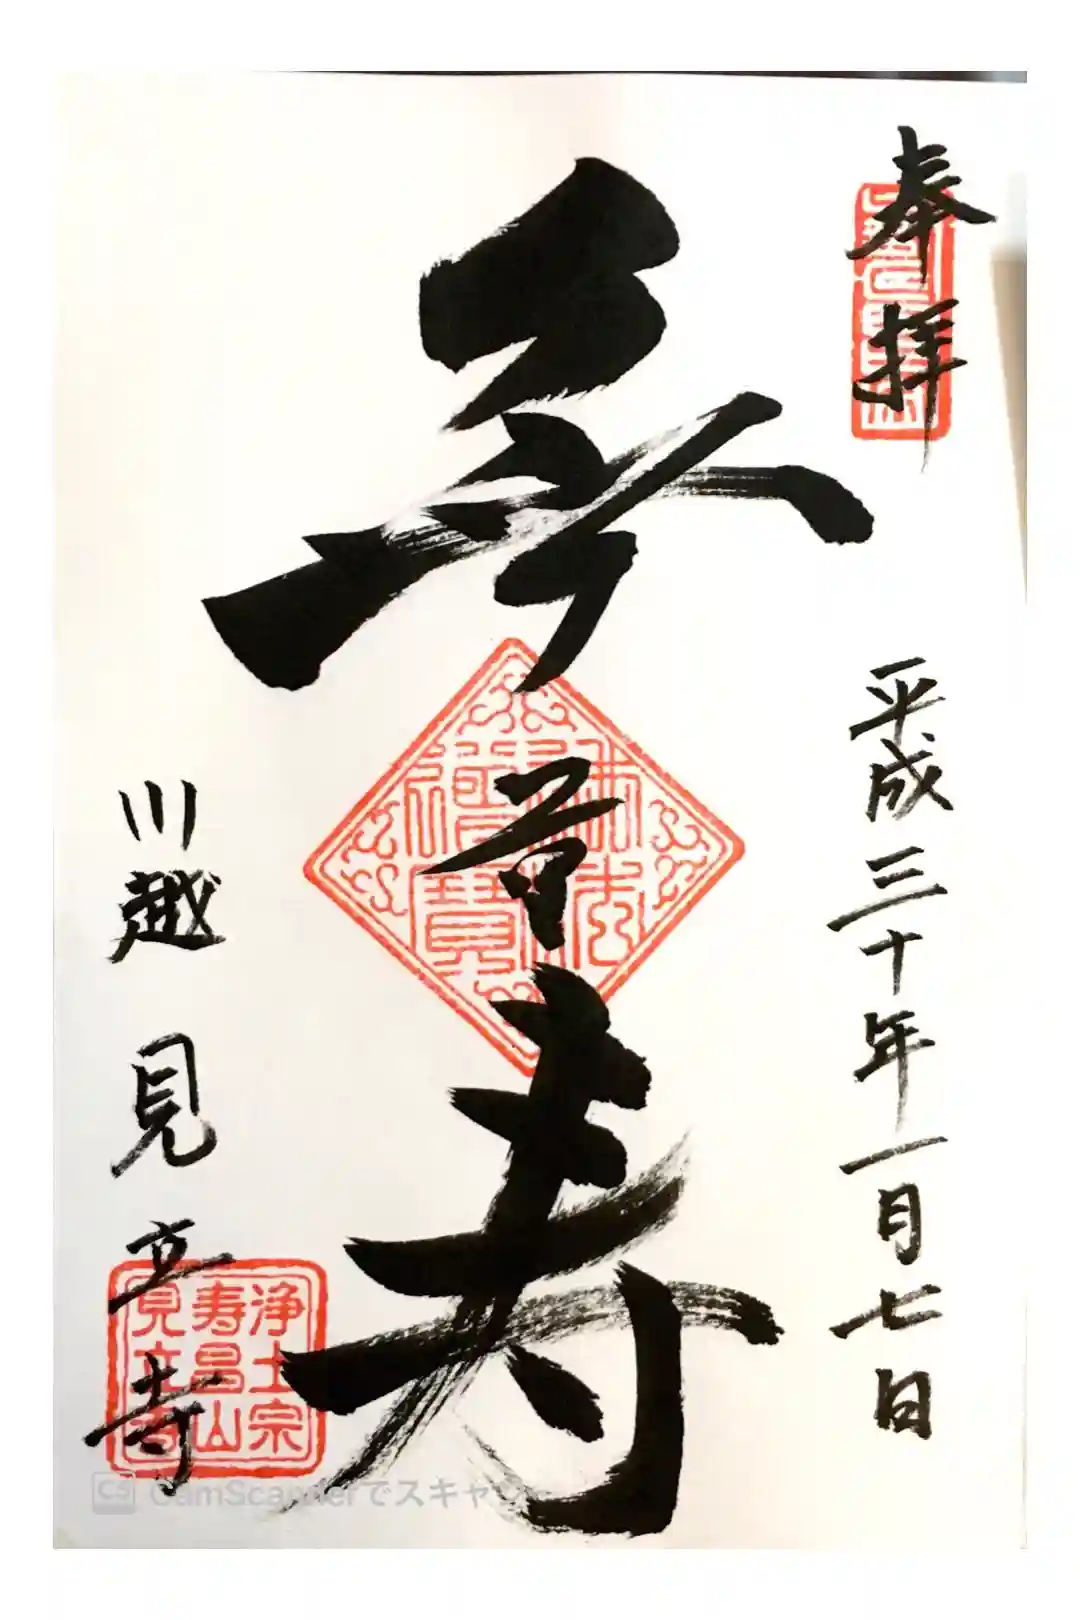 奉拝
平成三十年一月七日
無量寿
川越 見立寺
浄土宗
寿昌山
見立寺
CS CamScannerでスキャン